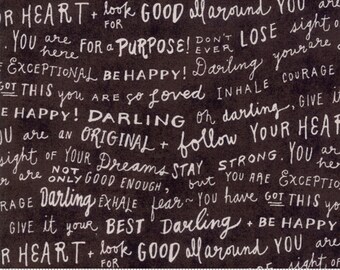 UR HEART + look FOR GOOD all around YOU are
sight of
YOU are here FOR a PURPOSE! DON'T EVER LOSE
EXCEPTIONAL BE HAPPY! Darling you are a
GOT THIS you ARE so Loved INHALE COURAGE
BE HAPPY! DARLING oh darling, GIVE it
YOU are an ORIGINAL + follow YOUR HEART
sight of YOUR Dreams STAY STRONG. YOU
are NOT ONLY GOOD ENOUGH, but YOU ARE EXCEPTION
COURAGE Darling EXHALE fear~ YOU HAVE GOT THIS you
GIVE it your BEST Darling + BE HAPPY
UR HEART + look FOR GOOD all around YOU are